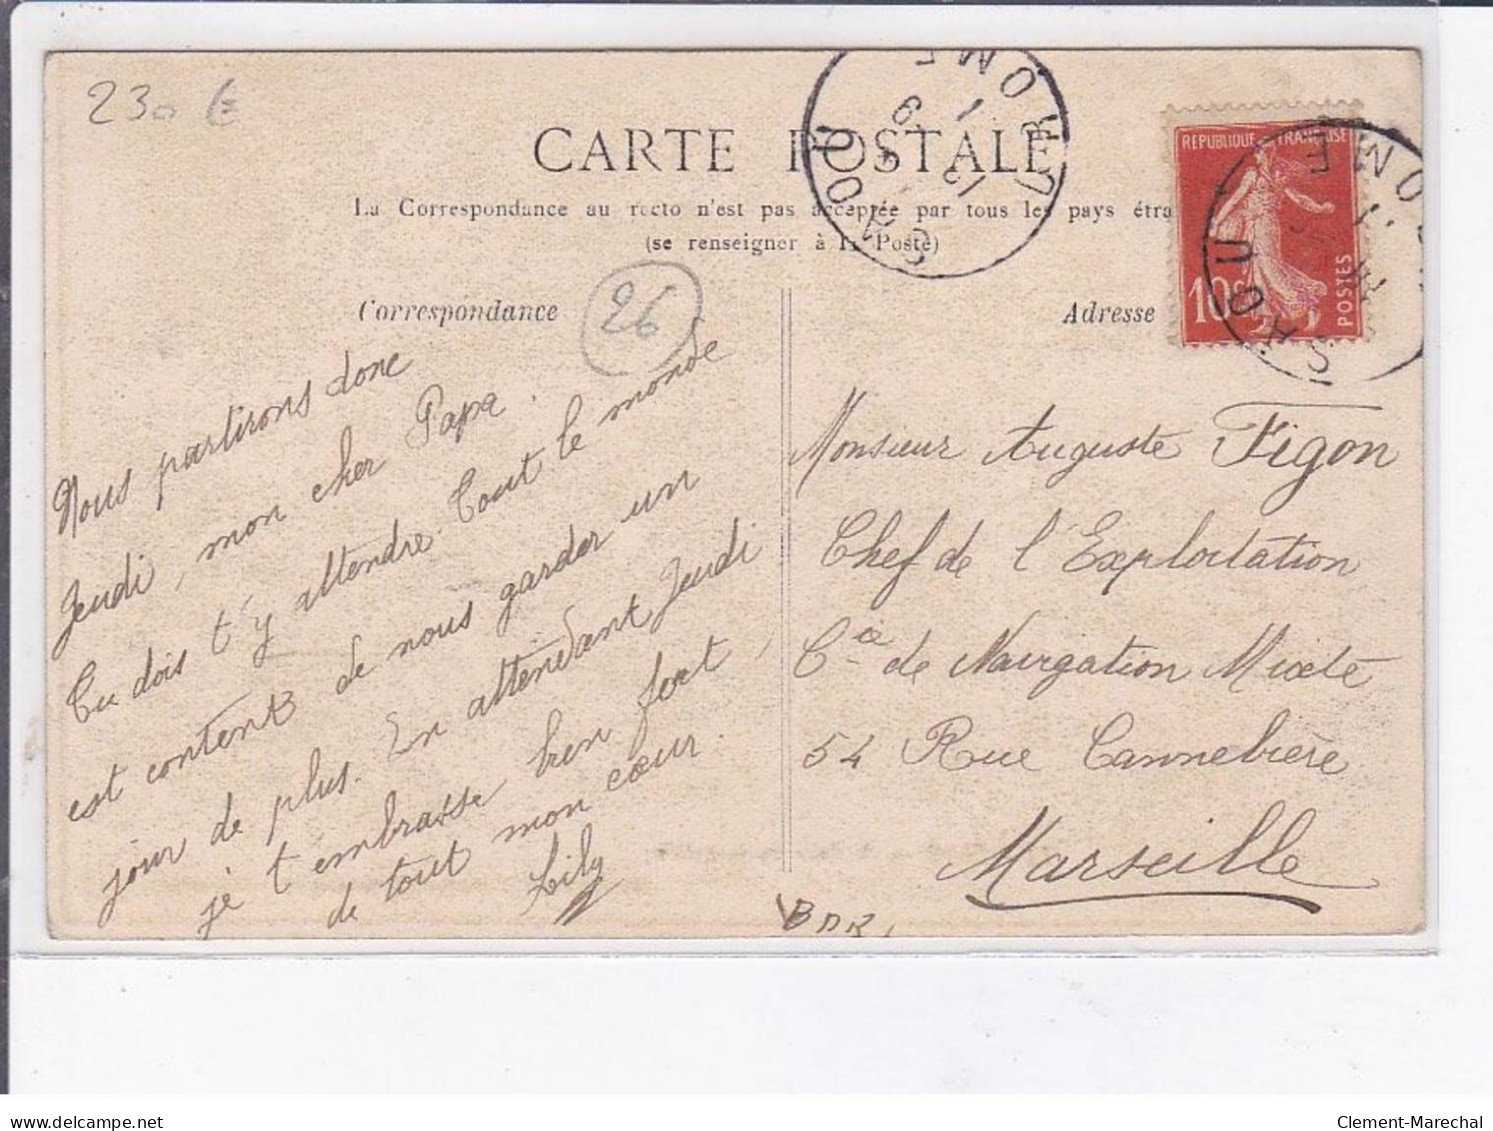 230 €
CARTE POSTALE
La Correspondance au recto n'est pas acceptée par tous les pays étra
(se renseigner à la Poste)
Correspondance
26
Adresse
REPUBLIQUE FRANÇAISE
10c
POSTES
DROME
Nous partirons donc
Jeudi, mon cher Papa.
Tu dois t'y attendre. Tout le monde
est content de nous garder un
jour de plus. En attendant Jeudi
je t'embrasse bien fort,
de tout mon cœur.
Lily
Monsieur Auguste Figon
Chef de l'Exploitation
Cie de Navigation Mixte
54 Rue Cannebière
Marseille
BDR
delcampe.net
Clement-Marechal